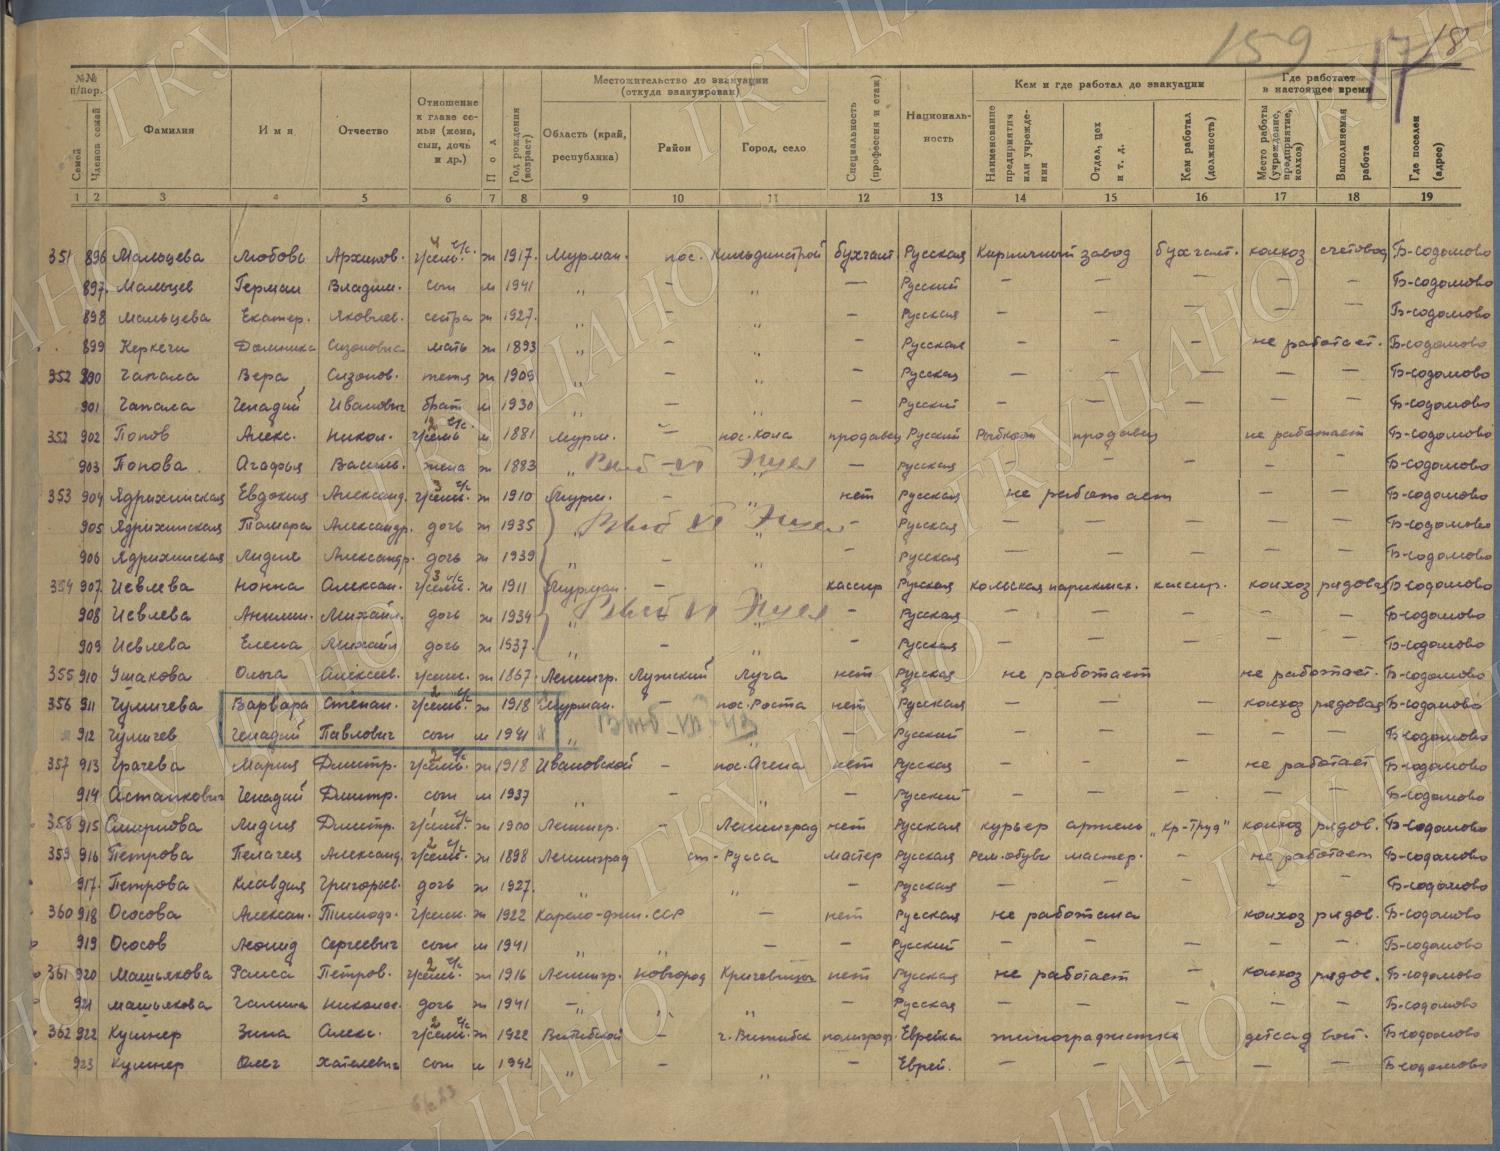 159 17 18
№№ п/пор.
Местожительство до эвакуации (откуда эвакуирован)
Кем и где работал до эвакуации
Где работает в настоящее время
Семей
Членов семей
Фамилия
Имя
Отчество
Отношение к главе семьи (жена, сын, дочь и др.)
Пол
Год рождения (возраст)
Область (край, республика)
Район
Город, село
Специальность (профессия и стаж)
Национальность
Наименование предприятия или учреждения
Отдел, цех и т. д.
Кем работал (должность)
Место работы (учреждение, предприятие, колхоз)
Выполняемая работа
Где поселен (адрес)
1 2 3 4 5 6 7 8 9 10 11 12 13 14 15 16 17 18 19
351 896 Мальцева Любовь Архипов. г/сем. 4 ч/с. ж 1917. Мурман. пос. Кильдинстрой бухгалт. Русская Кирпичный завод бухгалт. колхоз счетовод Б-содомово
897. Мальцев Герман Владим. сын м 1941 „ — „ — Русский — — — — Б-содомово
898 Мальцева Екатер. Яковлев. сестра ж 1927. „ — „ — Русская — — — — — Б-содомово
899 Керкечи Доминика Сизоновна мать ж 1893 „ — „ — Русская — — — не работает. Б-содомово
352 900 Чапала Вера Сизонов. тетя ж 1909 „ — „ — Русская — — — — — Б-содомово
901 Чапала Генадий Иванович брат м 1930 „ — „ — Русский — — — — — Б-содомово
352 902 Попов Алекс. Никол. г/семь 2 ч/с. м 1881 Мурм. — пос. Кола продавец Русский Рыбкооп продавец не работает Б-содомово
903 Попова Агафья Василь. жена ж 1883 „ „ — Русская — — — - - Б-содомово
353 904 Ядрихинская Евдокия Александ. г/семь. 3 ч/с ж 1910 Мурм. — „ нет Русская не работает — — Б-содомово
905 Ядрихинская Тамара Александр. дочь ж 1935 „ „ — Русская — — — — — Б-содомово
906 Ядрихинская Лидия Александр. дочь ж 1939 „ — „ — Русская — — — — — Б-содомово
354 907 Иевлева Нонна Алексан. г/семь. 3 ч/с ж 1911 Мурман. — кассир Русская Кольская парикмах. кассир. колхоз рядовая Б-содомово
908 Иевлева Михайл. дочь ж 1934 „ „ — Русская — — — — — Б-содомово
909 Иевлева Елена Михайл дочь ж 1937. „ — „ — Русская — — — — — Б-содомово
355 910 Ушакова Ольга Алексеев. г/семь. ж 1867. Ленингр. Лужский Луга нет Русская не работает не работает. Б-содомово
356 911 Чумичева Варвара Степан. г/семь. 2 ч/с ж 1918 Мурман. — пос. Роста нет Русская — — — колхоз рядовая Б-содомово
912 Чумичев Генадий Павлович сын м 1941 „ — „ — Русский — — — — — Б-содомово
357 913 Грачева Мария Дмитр. г/семь. 2 ч/с. ж 1918 Ивановской — нет Русская — — — не работает Б-содомово
914 Астанкович Генадий Дмитр. сын м 1937 „ — „ — Русский — — — — — Б-содомово
358 915 Смирнова Лидия Дмитр. г/семь. ж 1900 Ленингр. — Ленинград нет Русская курьер артель „Кр-Труд" колхоз рядов. Б-содомово
359 916 Петрова Пелагея Александ. г/семь. ж 1898 Ленинград ст-Русса мастер Русская Рем. обуви мастер. — не работает Б-содомово
917. Петрова Клавдия Григорьев. дочь ж 1927. „ „ — Русская — — — - — Б-содомово
360 918 Ососова Алексан. Тимоф. г/семь. ж 1922 Карело-фин. ССР — нет Русская не работала колхоз рядов. Б-содомово
919 Ососов Леонид Сергеевич сын м 1941 „ „ — — Русский — — — — — Б-содомово
361 920 Машьякова Раиса Петров. г/семь. 2 ч/с. ж 1916 Ленингр. Новгород нет Русская не работает — колхоз рядов. Б-содомово
921 Машьякова Галина Николае. дочь ж 1941 — „ „ „ — Русская — — — — — Б-содомово
362 922 Кушнер Зина Алекс. г/семь. 2 ч/с. ж 1922 Витебской — г. Витебск полиграф. Еврейка детсад вост. Б-содомово
923 Кушнер Олег сын м 1942 „ — „ — Еврей. — — — — — Б-содомово
ГКУ ЦАНО